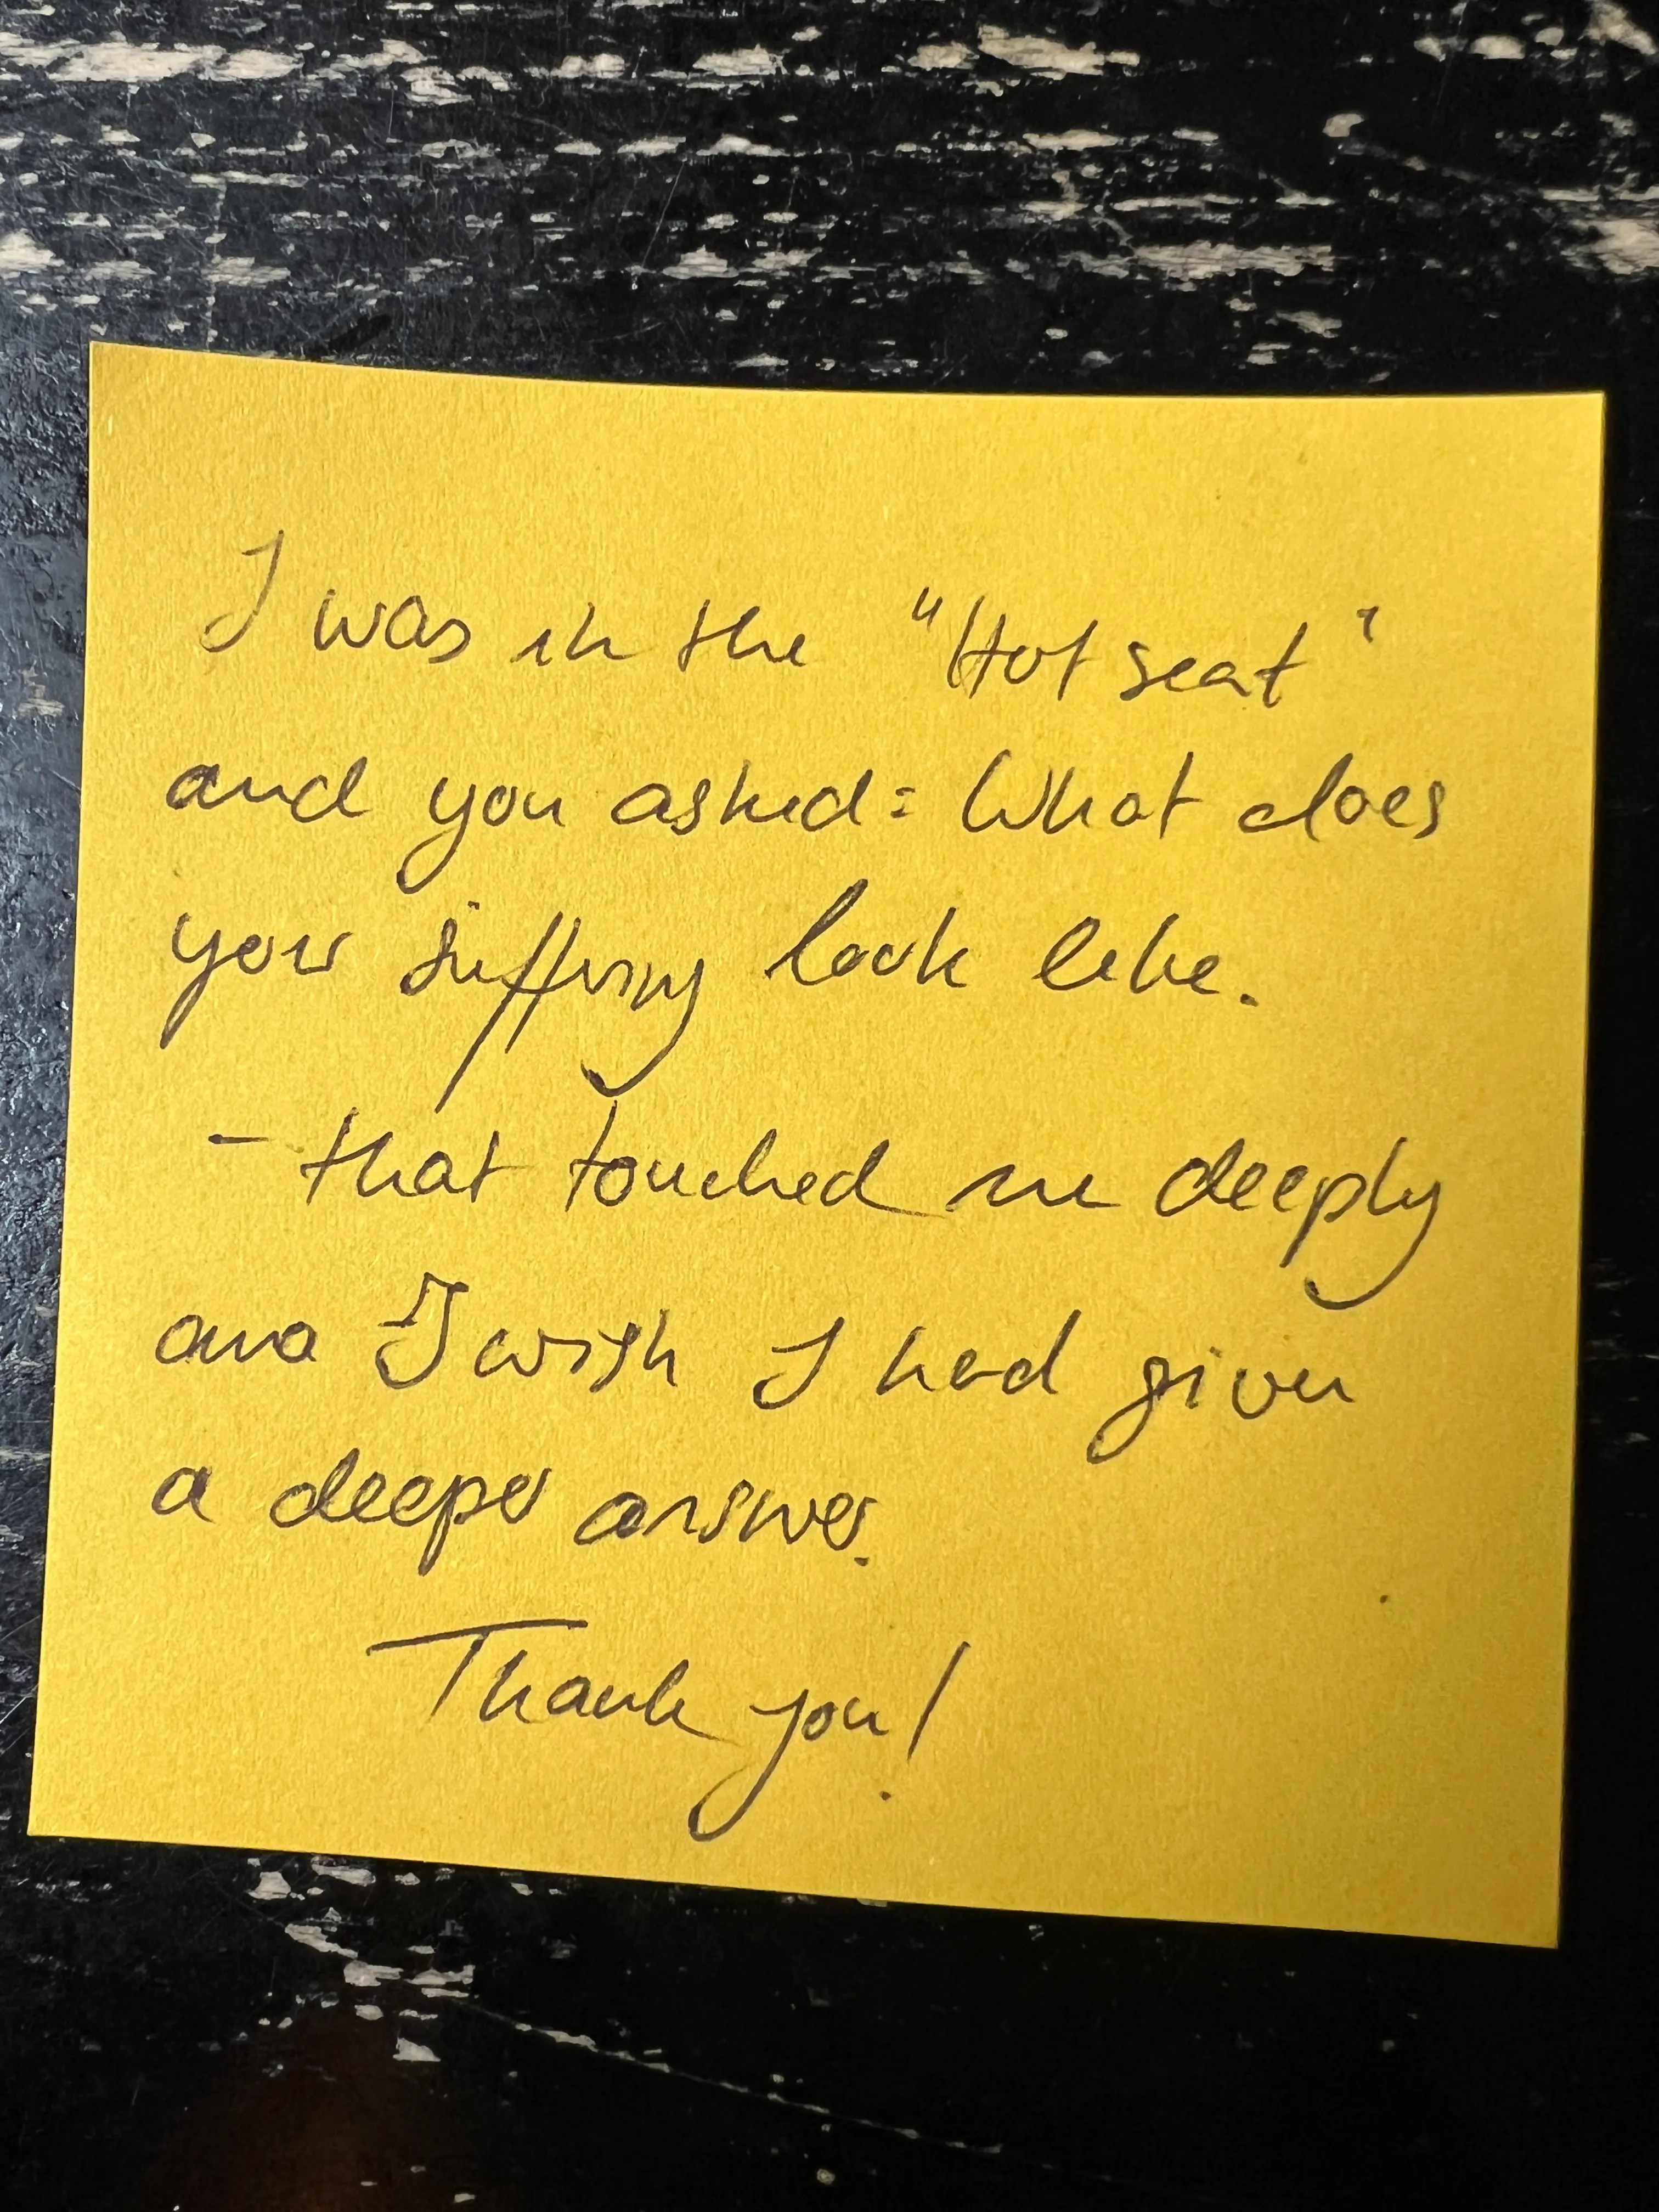 I was in the "Hot seat"
and you asked: What does
your suffering look like.
- that touched me deeply
and I wish I had given
a deeper answer.
Thank you!